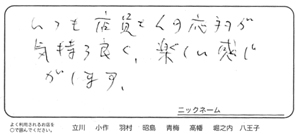 いつも店員さんの応対が
気持ち良く、楽しい感じ
がします。
ニックネーム
よく利用されるお店を
○で囲んでください。
立川 小作 羽村 昭島 青梅 高幡 堀之内 八王子